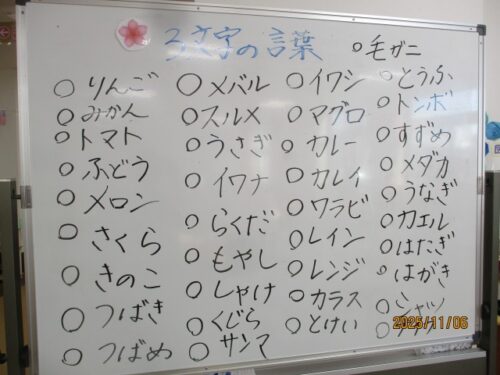 3文字の言葉
○毛ガニ
○りんご
○みかん
○トマト
○ふどう
○メロン
○さくら
○きのこ
○つばき
○つばめ
○メバル
○スルメ
○うさぎ
○イワナ
○らくだ
○もやし
○しゃけ
○くじら
○サンマ
○イワシ
○マグロ
○カレー
○カレイ
○ワラビ
○レイン
○レンジ
○カラス
○とけい
○とうふ
○トンボ
○すずめ
○メダカ
○うなぎ
○カエル
○はたぎ
○はがき
○シャツ
2025/11/06